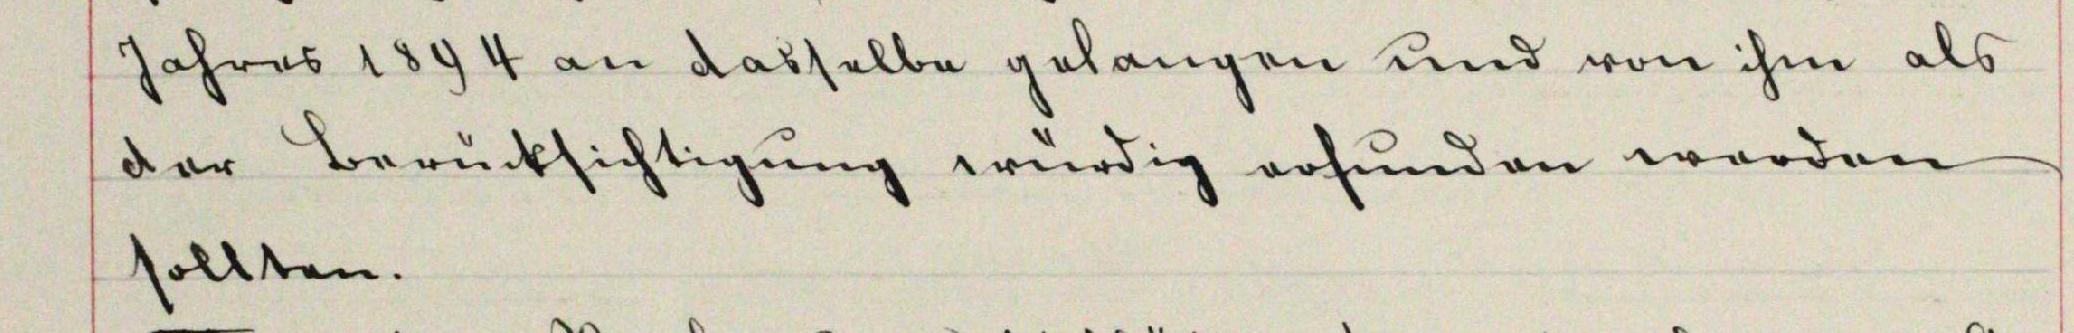 Jahres 1894 an dasselbe gelangen und von ihm als
der Berücksichtigung würdig erfunden werden
sollten.